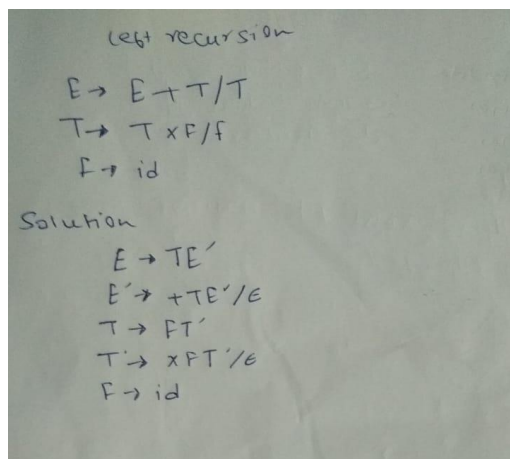 left recursion
E → E + T / T
T → T × F / f
F → id
Solution
E → TE′
E′ → +TE′/ε
T → FT′
T′ → ×FT′/ε
F → id